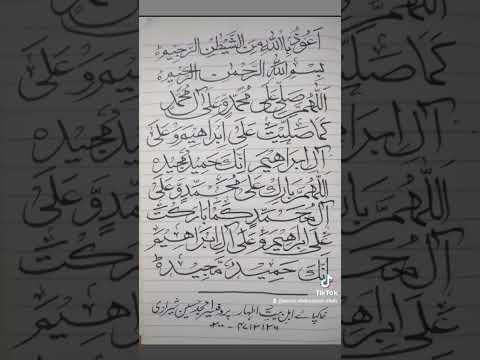 اَعُوذُ بِاللهِ مِنَ الشَّيْطٰنِ الرَّجِيْمِ
بِسْمِ اللهِ الرَّحْمٰنِ الرَّحِيْمِ
اَللّٰهُمَّ صَلِّى عَلٰى مُحَمَّدٍ وَّعَلٰى آلِ مُحَمَّدٍ
كَمَا صَلَّيْتَ عَلٰى اِبْرَاهِيْمَ وَ عَلٰى
آلِ اِبْرَاهِيْمَ اِنَّكَ حَمِيْدٌ مَّجِيْدٌ
اَللّٰهُمَّ بَارِكْ عَلٰى مُحَمَّدٍ وَّ عَلٰى
آلِ مُحَمَّدٍ كَمَا بَارَكْتَ
عَلٰى اِبْرَاهِيْمَ وَ عَلٰى آلِ اِبْرَاهِيْمَ
اِنَّكَ حَمِيْدٌ مَّجِيْدٌ
خاکپائے اہل بیت اطہار پروفیسر حسین شیرازی
TikTok